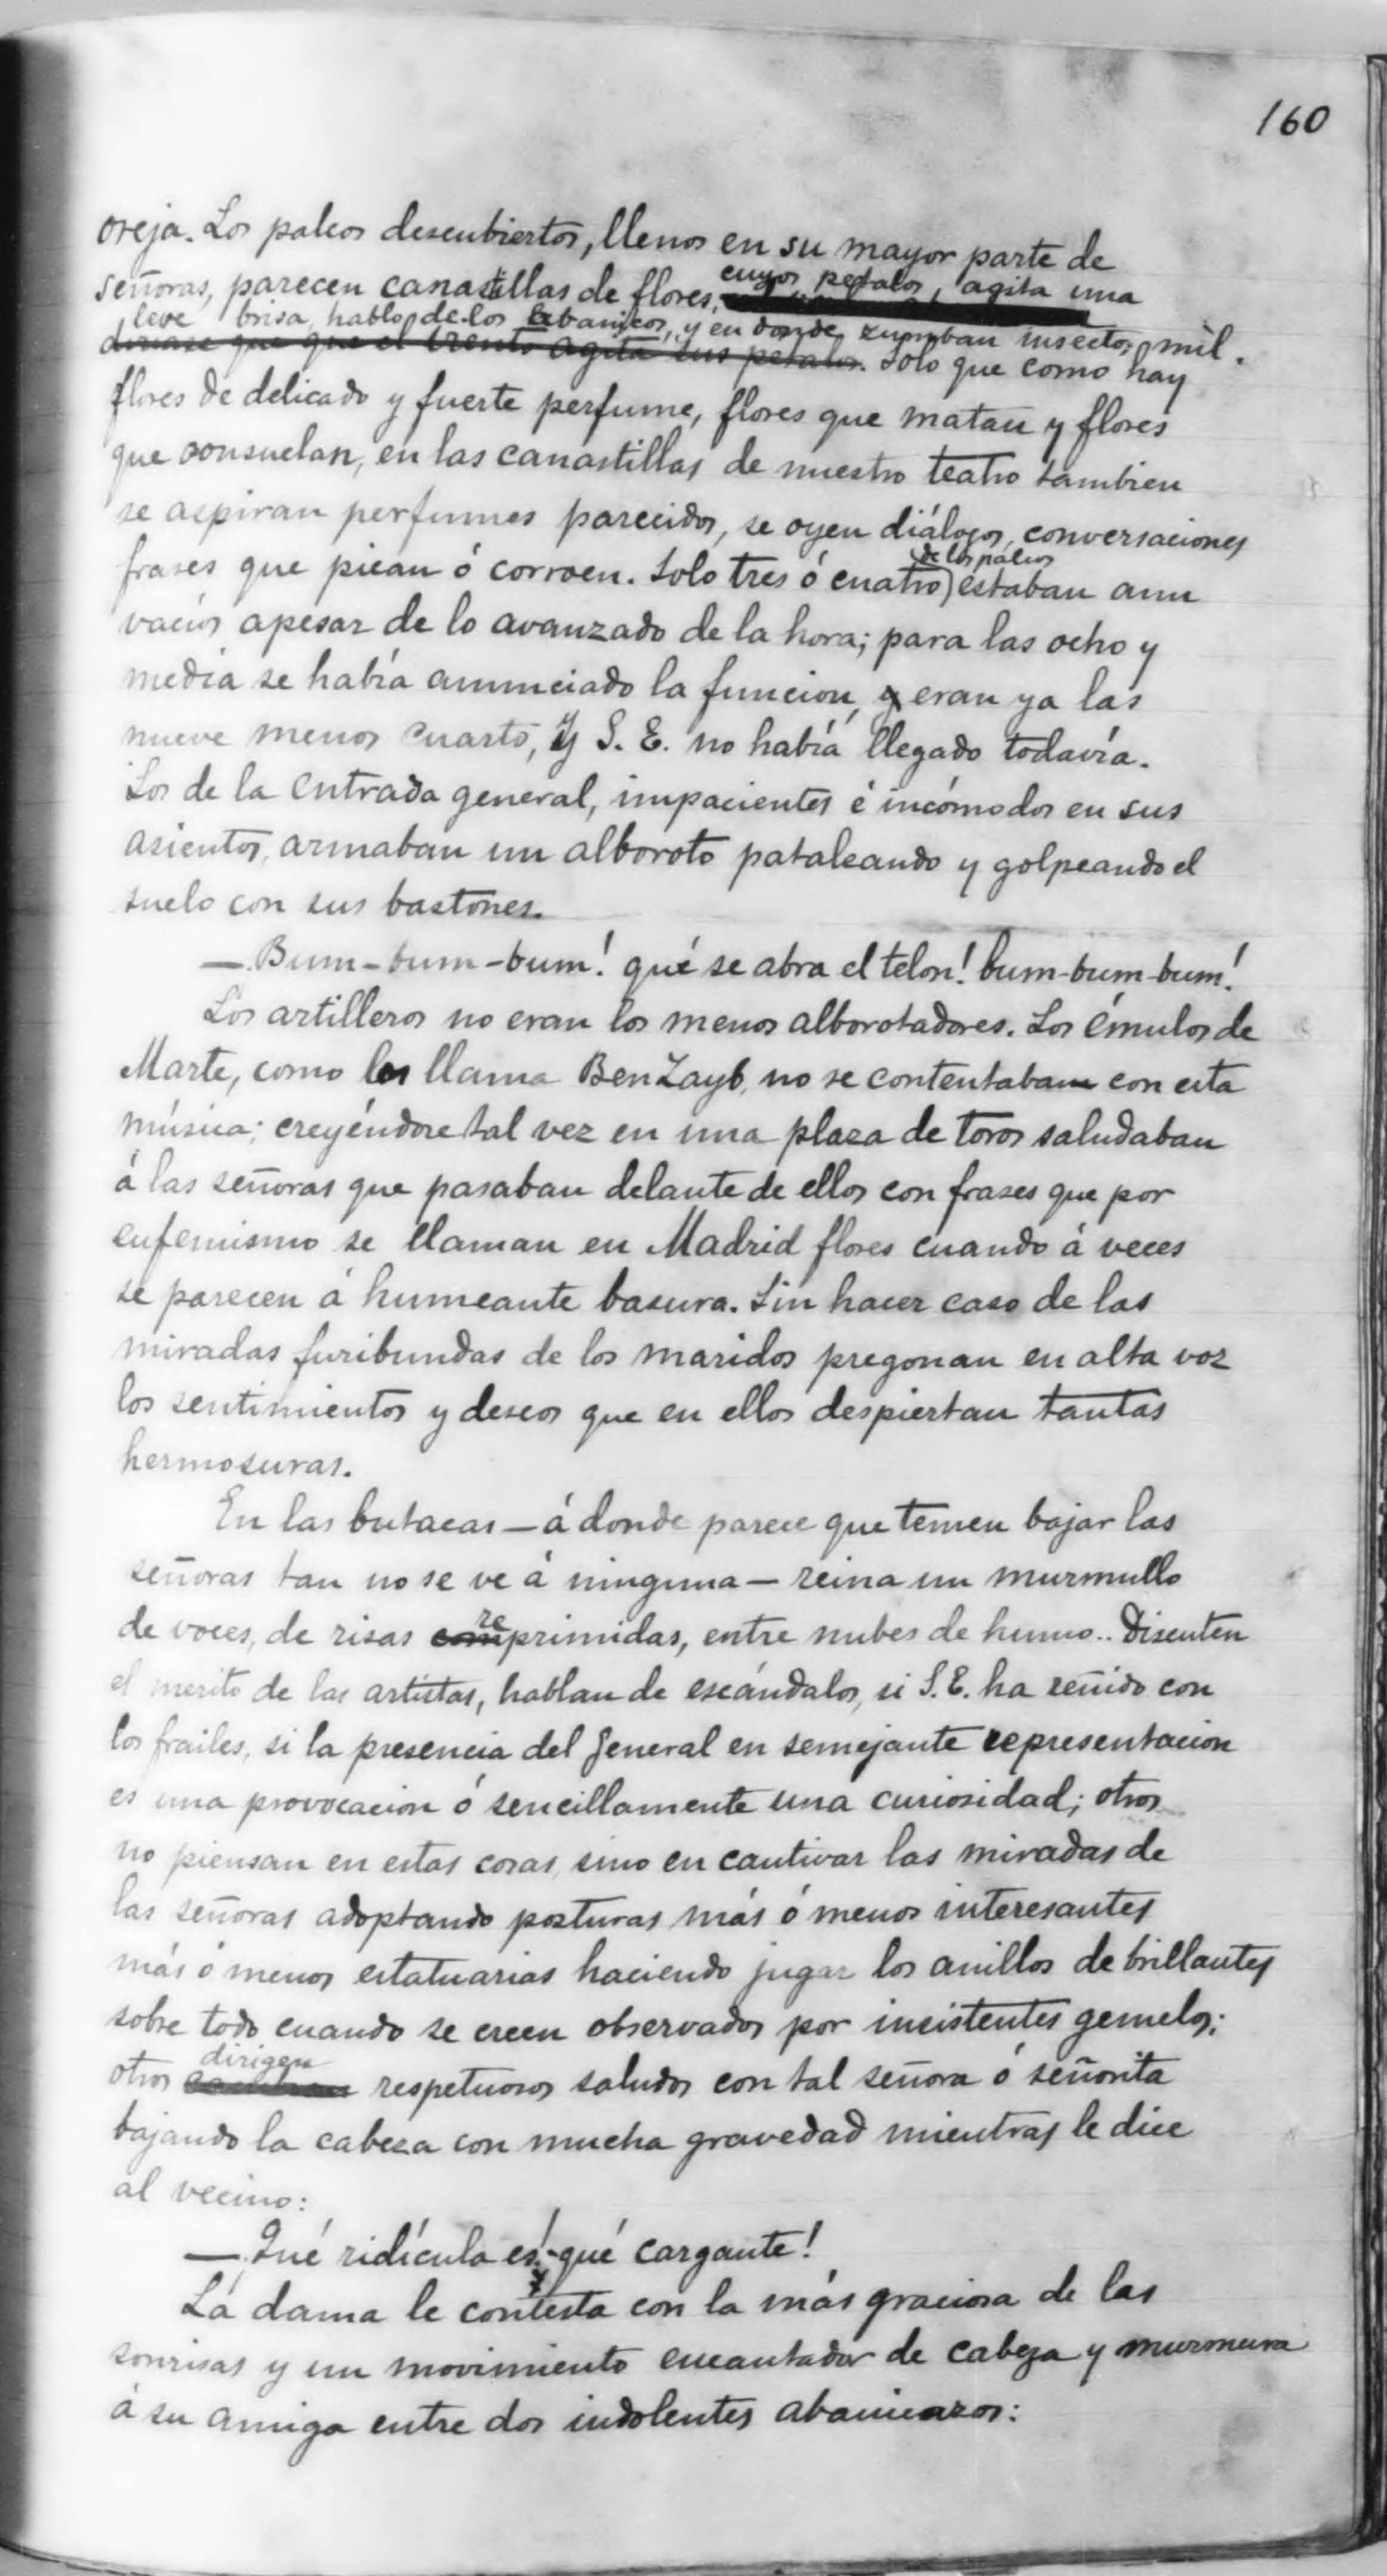 160
oreja. Los palcos descubiertos, llenos en su mayor parte de
señoras, parecen canastillas de flores, cuyos petalos, agita una
leve brisa, hablo de los abanicos, y en donde zumban insectos mil.
diriase que que el viento agita sus petalos. Solo que como hay
flores de delicado y fuerte perfume, flores que matan y flores
que consuelan, en las canastillas de nuestro teatro tambien
se aspiran perfumes parecidos, se oyen diálogos, conversaciones
frases que pican ó corroen. Solo tres ó cuatro de los palcos estaban aun
vacios apesar de lo avanzado de la hora; para las ocho y
media se había anunciado la funcion, y eran ya las
nueve menos cuarto, y S. E. no había llegado todavía.
Los de la entrada general, impacientes é incómodos en sus
asientos, armaban un alboroto pataleando y golpeando el
suelo con sus bastones.
— Bum-bum-bum! qué se abra el telon! bum-bum-bum!
Los artilleros no eran los menos alborotadores. Los émulos de
Marte, como los llama Ben Zayb, no se contentaban con esta
música; creyéndose tal vez en una plaza de toros saludaban
á las señoras que pasaban delante de ellos con frases que por
eufemismo se llaman en Madrid flores cuando á veces
se parecen á humeante basura. Sin hacer caso de las
miradas furibundas de los maridos pregonan en alta voz
los sentimientos y deseos que en ellos despiertan tantas
hermosuras.
En las butacas — á donde parece que temen bajar las
señoras tan no se ve á ninguna — reina un murmullo
de voces, de risas reprimidas, entre nubes de humo.. Discuten
el merito de las artistas, hablan de escándalos, si S. E. ha reñido con
los frailes, si la presencia del General en semejante representacion
es una provocacion ó sencillamente una curiosidad; otros
no piensan en estas cosas, sino en cautivar las miradas de
las señoras adoptando posturas más ó menos interesantes
más ó menos estatuarias haciendo jugar los anillos de brillantes
sobre todo cuando se creen observados por insistentes gemelos;
otros dirigen respetuosos saludos con tal señora ó señorita
bajando la cabeza con mucha gravedad mientras le dice
al vecino:
— Qué ridícula es! qué cargante!
La dama le contesta con la más graciosa de las
sonrisas y un movimiento encantador de cabeza y murmura
á su amiga entre dos indolentes abanicazos: